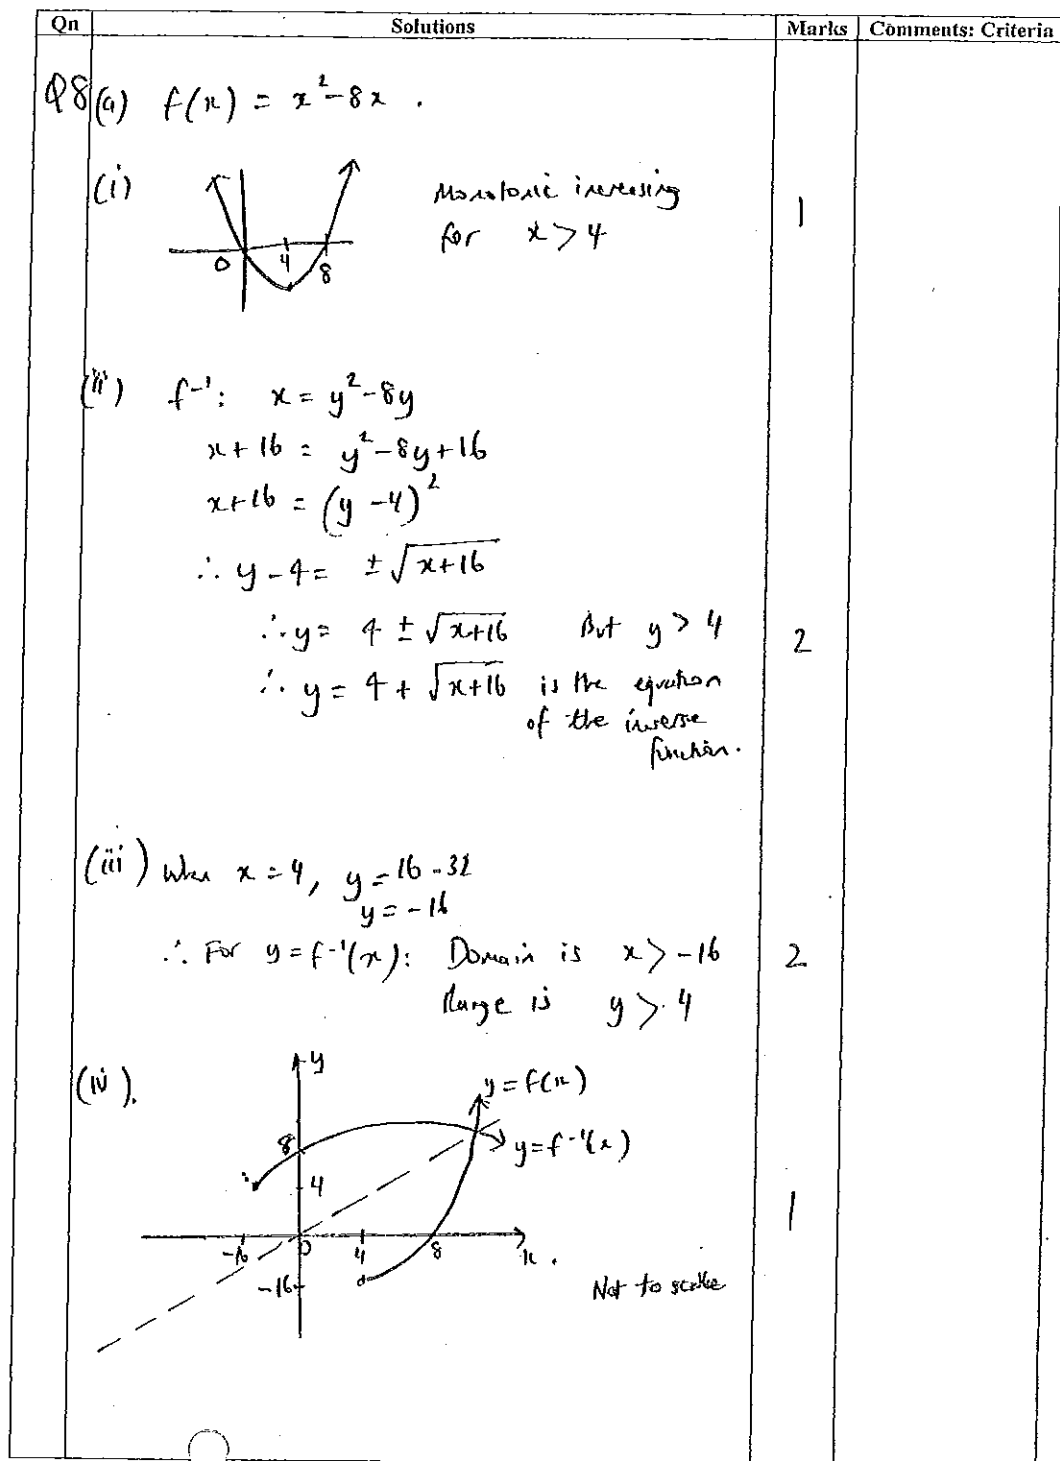 Qn Solutions Marks Comments: Criteria
Q8 (a) f(x) = x² - 8x .
(i) Monotonic increasing
for x > 4 1
0 4 8
(ii) f⁻¹: x = y² - 8y
x + 16 = y² - 8y + 16
x + 16 = (y - 4)²
∴ y - 4 = ± √x+16
∴ y = 4 ± √x+16 But y > 4 2
∴ y = 4 + √x+16 is the equation
of the inverse
function.
(iii) When x = 4, y = 16 - 32
y = -16
∴ For y = f⁻¹(x): Domain is x > -16 2
Range is y > 4
(iv). y
y = f(x)
8 y = f⁻¹(x)
4 1
-16 0 4 8 x .
-16 Not to scale